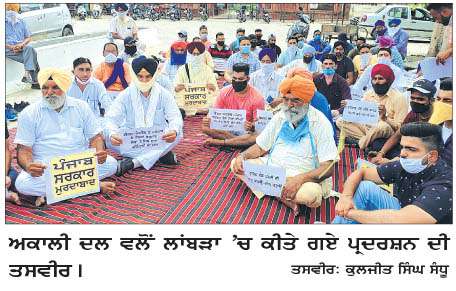 ਪੰਜਾਬ
ਸਰਕਾਰ
ਮੁਰਦਾਬਾਦ
ਪੰਜਾਬ
ਸਰਕਾਰ
ਮੁਰਦਾਬਾਦ
ਅਕਾਲੀ ਦਲ ਵਲੋਂ ਲਾਂਬੜਾ 'ਚ ਕੀਤੇ ਗਏ ਪ੍ਰਦਰਸ਼ਨ ਦੀ
ਤਸਵੀਰ। ਤਸਵੀਰ: ਕੁਲਜੀਤ ਸਿੰਘ ਸੰਧੂ